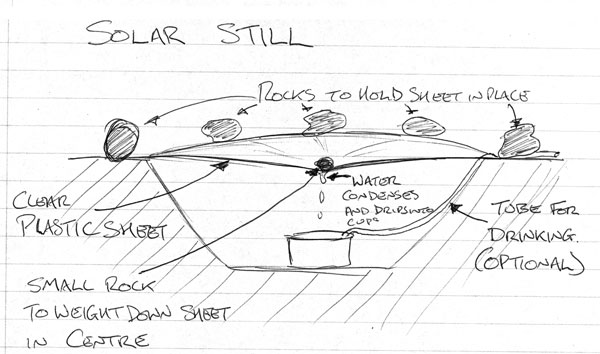 SOLAR STILL
ROCKS TO HOLD SHEET IN PLACE
WATER
CONDENSES
AND DRIPS INTO
CUP
CLEAR
PLASTIC SHEET
TUBE FOR
DRINKING.
(OPTIONAL)
SMALL ROCK
TO WEIGHT DOWN SHEET
IN CENTRE